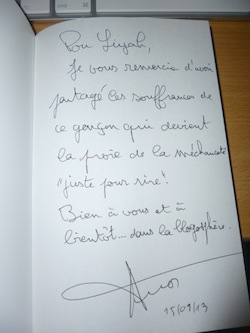 Pour Liyah,
Je vous remercie d'avoir
partagé les souffrances de
ce garçon qui devient
la proie de la méchanceté
"juste pour rire".
Bien à vous et à
bientôt... dans la blogosphère.
15/09/13